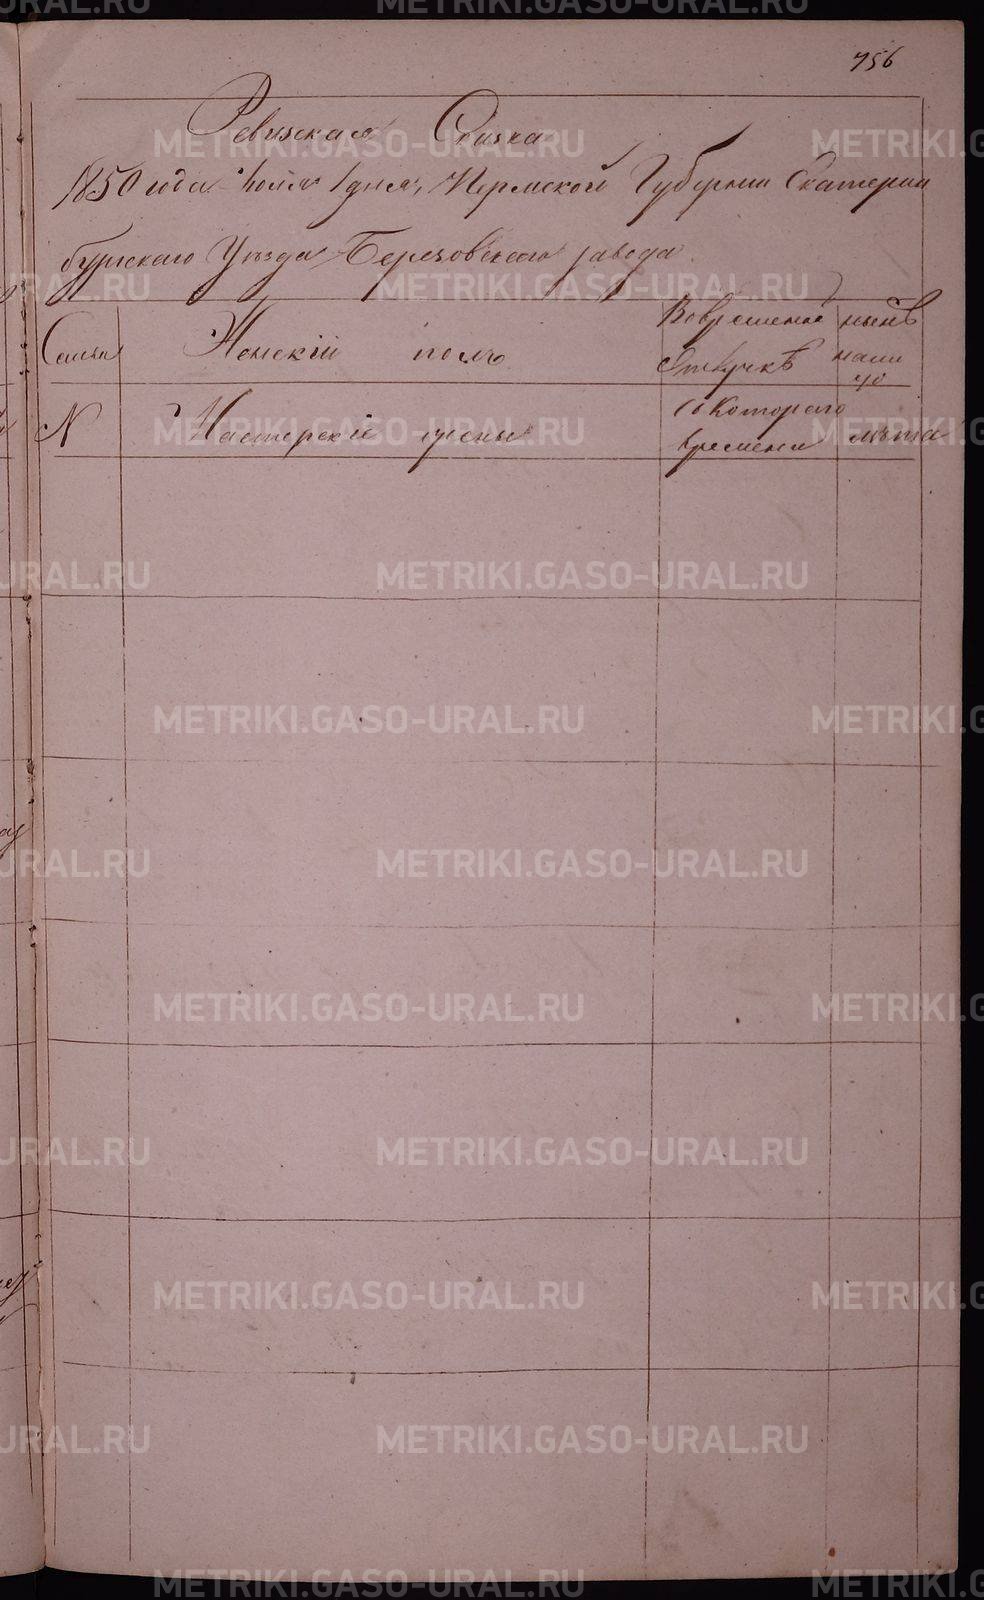 756
Ревизская Сказка
1850 года Июля 1 дня, Пермской Губернии Екатерин
бургскаго Уезда Березовскаго завода
Семьи Женскій полъ Вовременной нынѣ
Отлучкѣ нали
цо
N Мастерскіе жены Съ Котораго
времени лѣта
METRIKI.GASO-URAL.RU